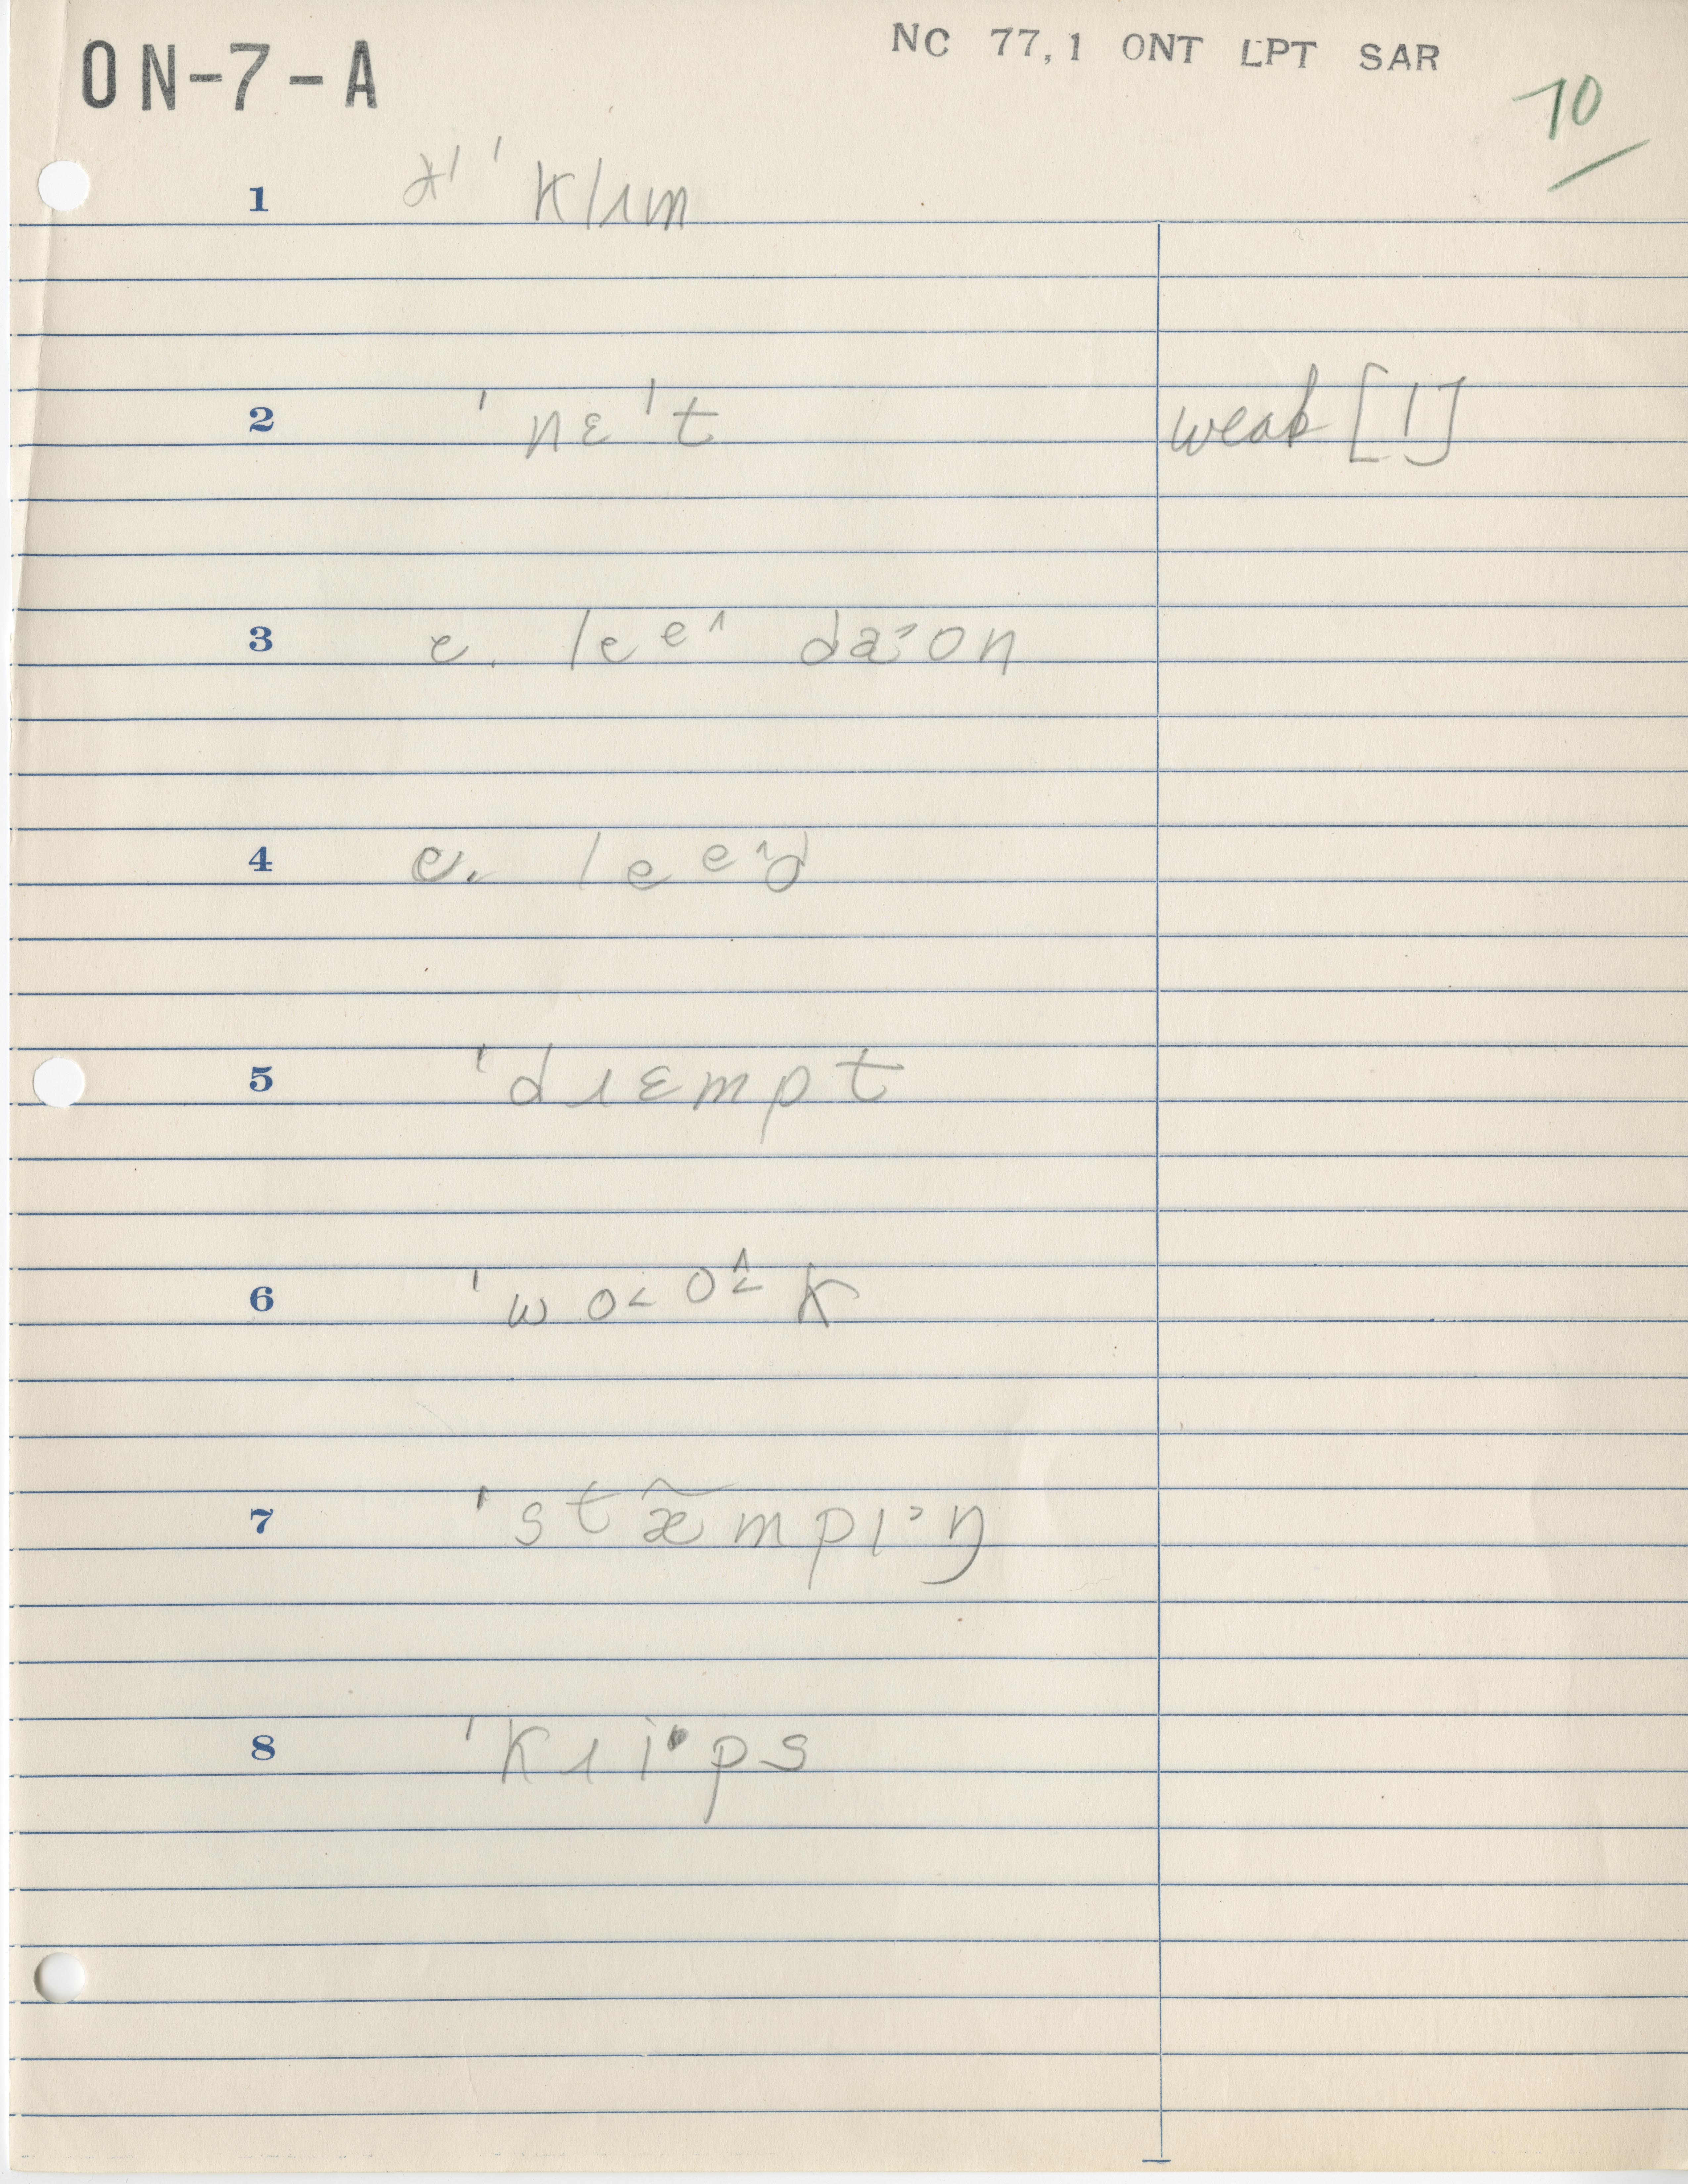 ON-7-A
NC 77,1 ONT LPT SAR
70
1 ˈklɪm
2 ˈnɛˈt weak [ˈ]
3 e. leeˆ daˑon
4 e. lee
5 ˈdɹɛmpt
6 ˈwo˂o˂̂k
7 ˈstæ̃mpɪ˒ŋ
8 ˈkɹiˑps